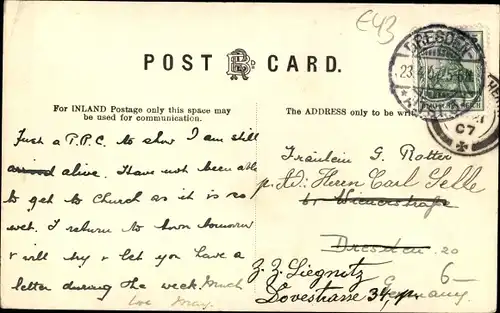 E43
POST CARD.
DRESDEN
23.
07
For INLAND Postage only this space may
be used for communication.
The ADDRESS only to be
Just a P.P.C. to show I am still
alive. Have not been able
to get to Church as it is so
wet. I return to town tomorrow
+ will try + let you have a
letter during the week. Much
love May.
Fräulein G. Rotter
p. Ad: Herrn Carl Selle
Wienerstraße
Dresden. 20
Z. Z. Liegnitz
Germany. 6-
Dovestrasse 34,